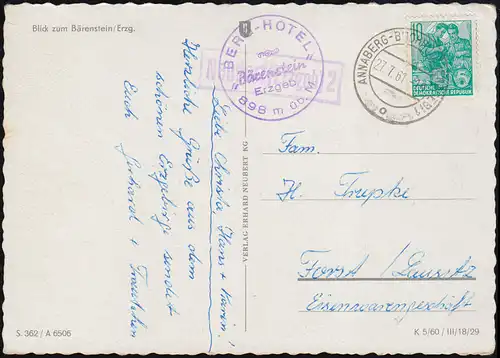 Blick zum Bärenstein/Erzg.
"BERG-HOTEL"
Bärenstein
Erzgeb.
898 m üb. M.
2
ANNABERG-B
27.7.61
10 5
DEUTSCHE
DEMOKRATISCHE REPUBLIK
Liebe Christa, Hans + Karin!
Herzliche Grüße aus dem
schönen Erzgebirge sendet
Euch Gerhard + Traudchen
VERLAG ERHARD NEUBERT KG
Fam.
H. Trupke
Forst / Lausitz
Eisenwarengeschäft
S. 362 / A 6506
K 5/60 / III/18/29